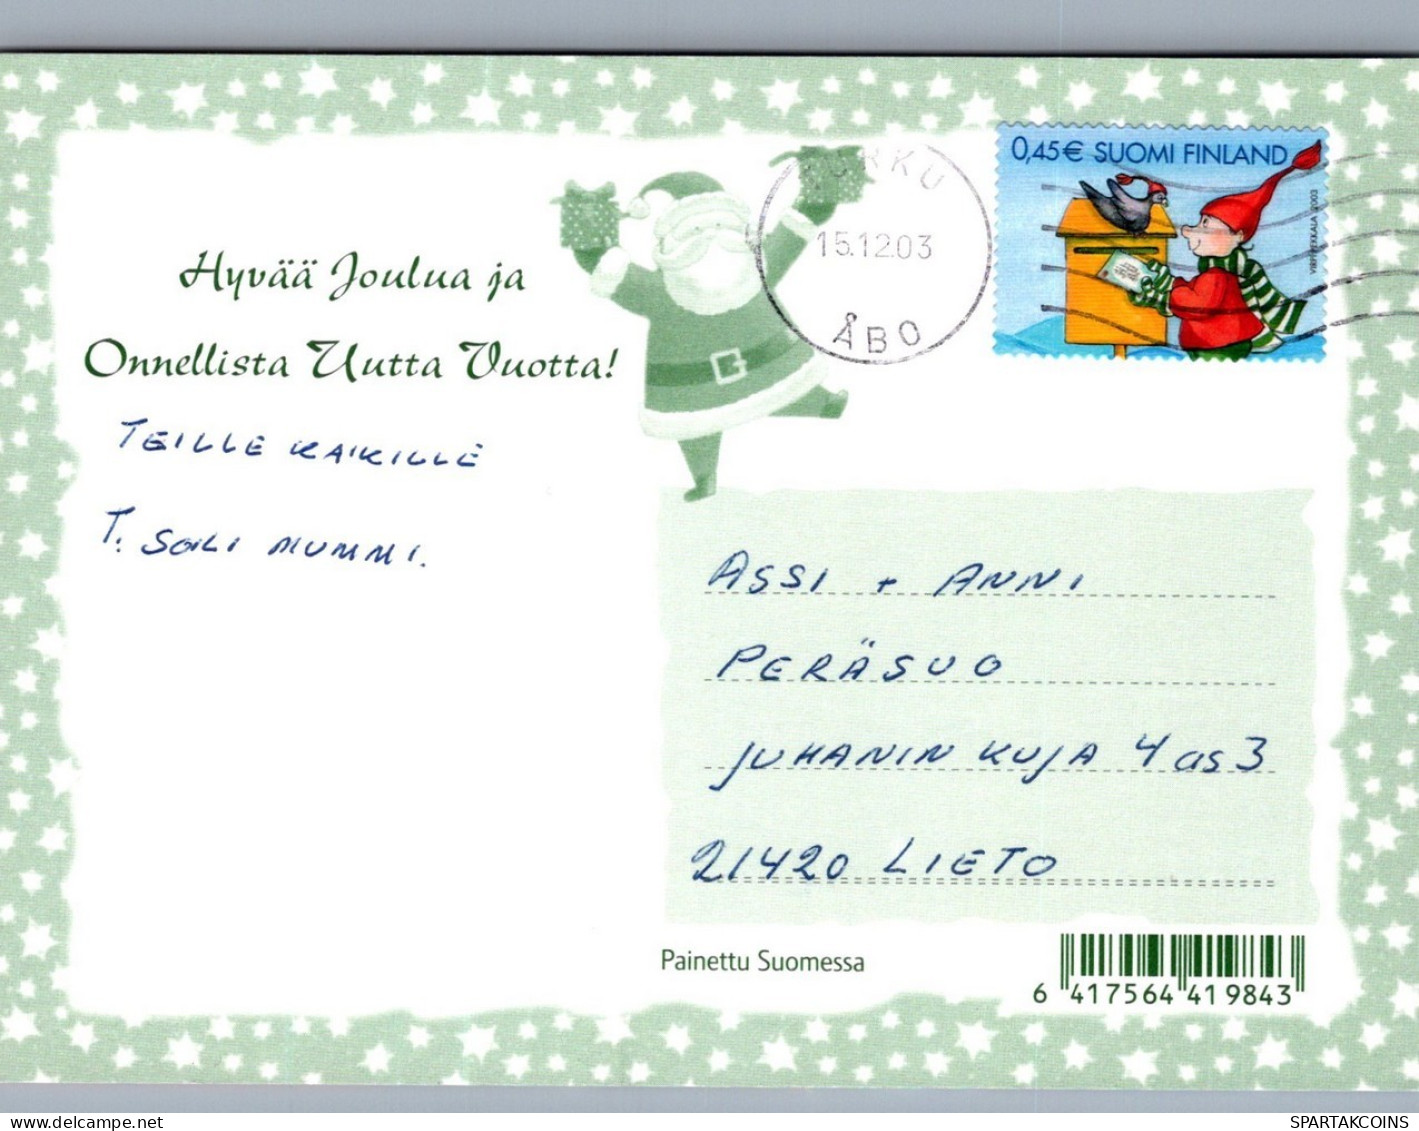 0,45€ SUOMI FINLAND
VIRPI PEKKALA 2003
TURKU
15.12.03
ÅBO
Hyvää Joulua ja
Onnellista Uutta Vuotta!
TEILLE KAIKILLE
T. SOILI MUMMI.
ASSI + ANNI
PERÄSUO
JUHANIN KUJA 4 as 3
21420 LIETO
Painettu Suomessa
6 417564 419843
delcampe.net
SPARTAKCOINS